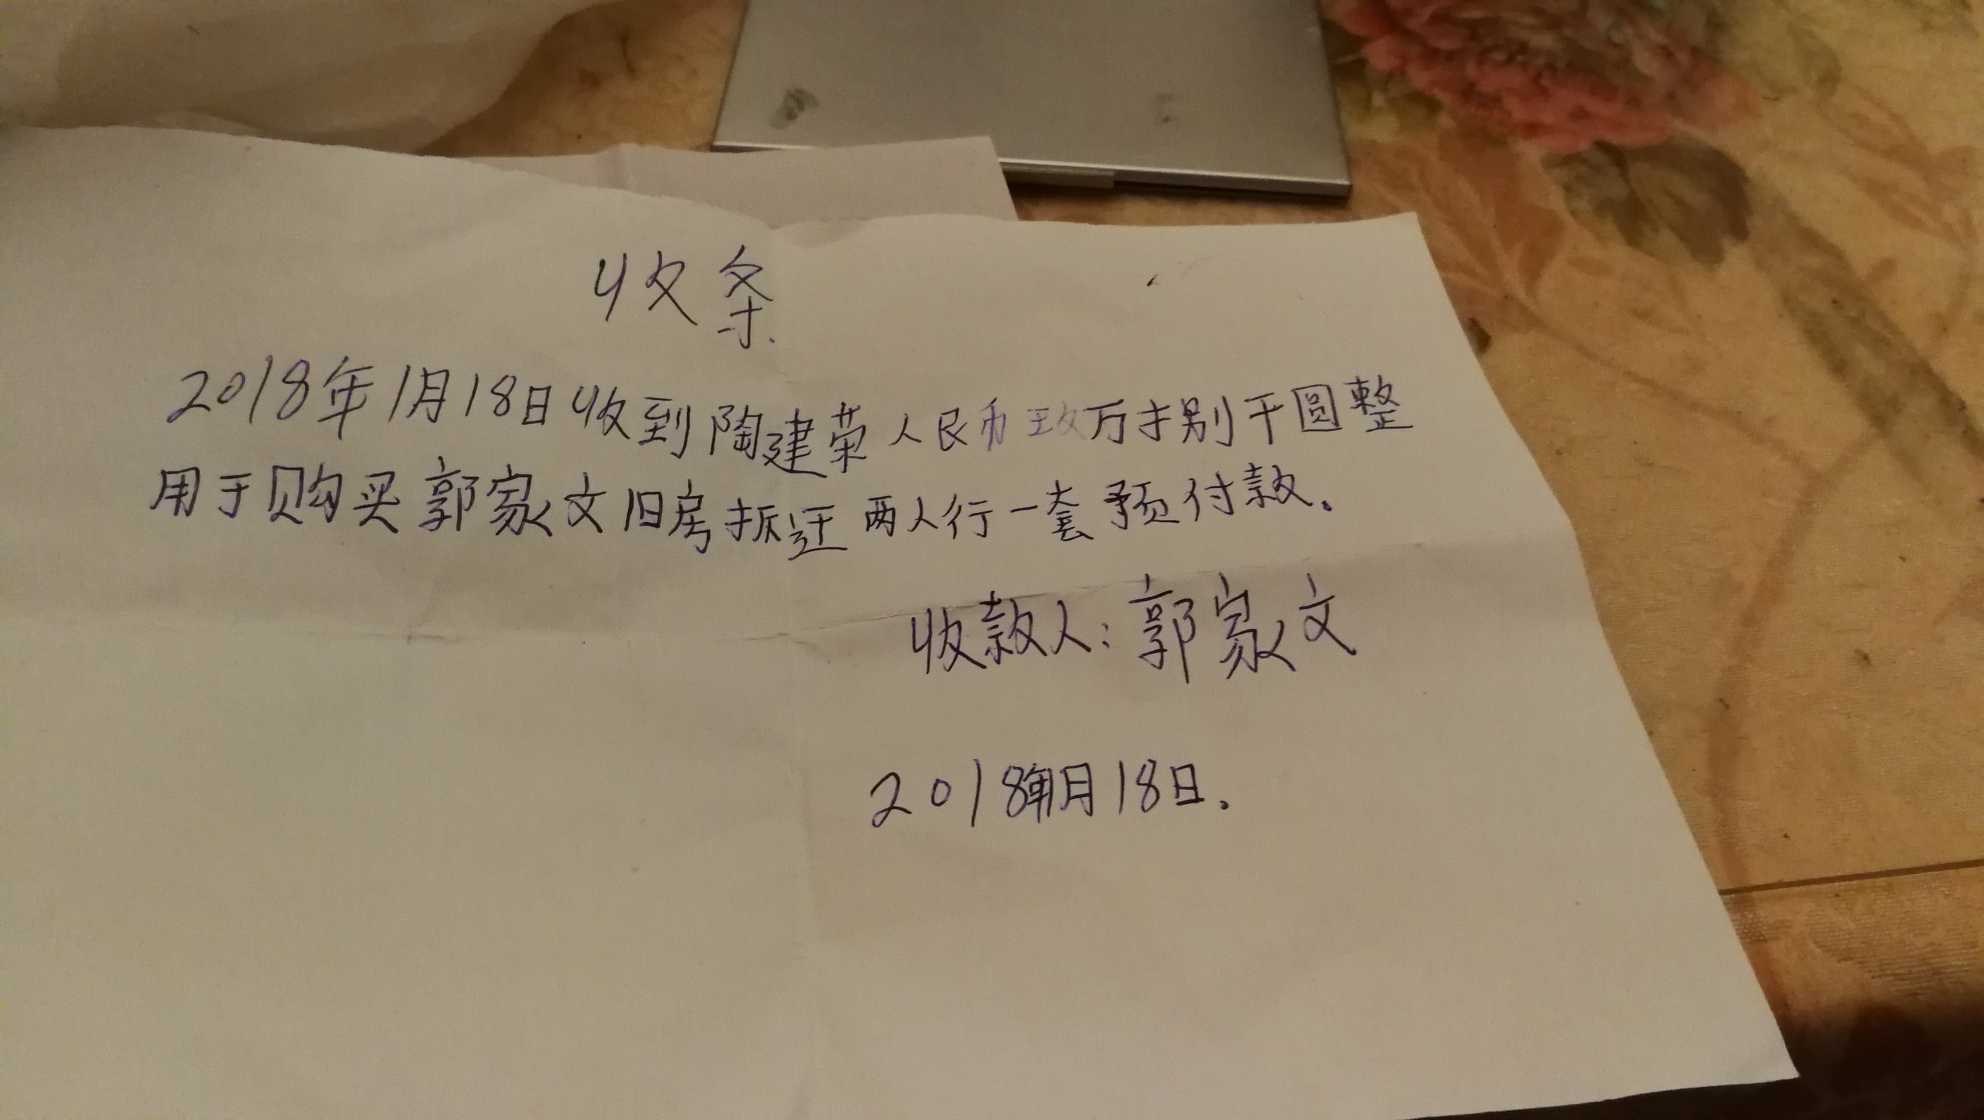 收条.
2018年1月18日收到陶建荣人民币玖万捌千圆整
用于购买郭家文旧房拆迁两人行一套预付款。
收款人:郭家文
2018年1月18日.